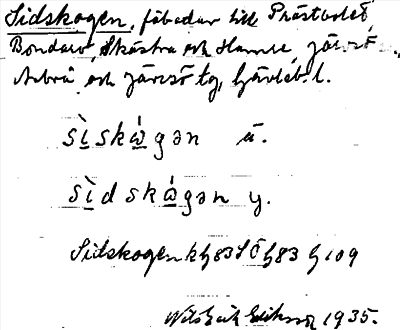 Sidskogen, fäbodar till Prästbolet,
Bondarv, Skästra och Hamre, Järvsö s.,
Arbrå och Järvsö tg, Gävleb. l.
sì̱skà̱gən ä.
sì̱dskà̱gən y.
Sidskogen k G83 SÖ G83 G 109
Nils Erik Eriksson 1935.